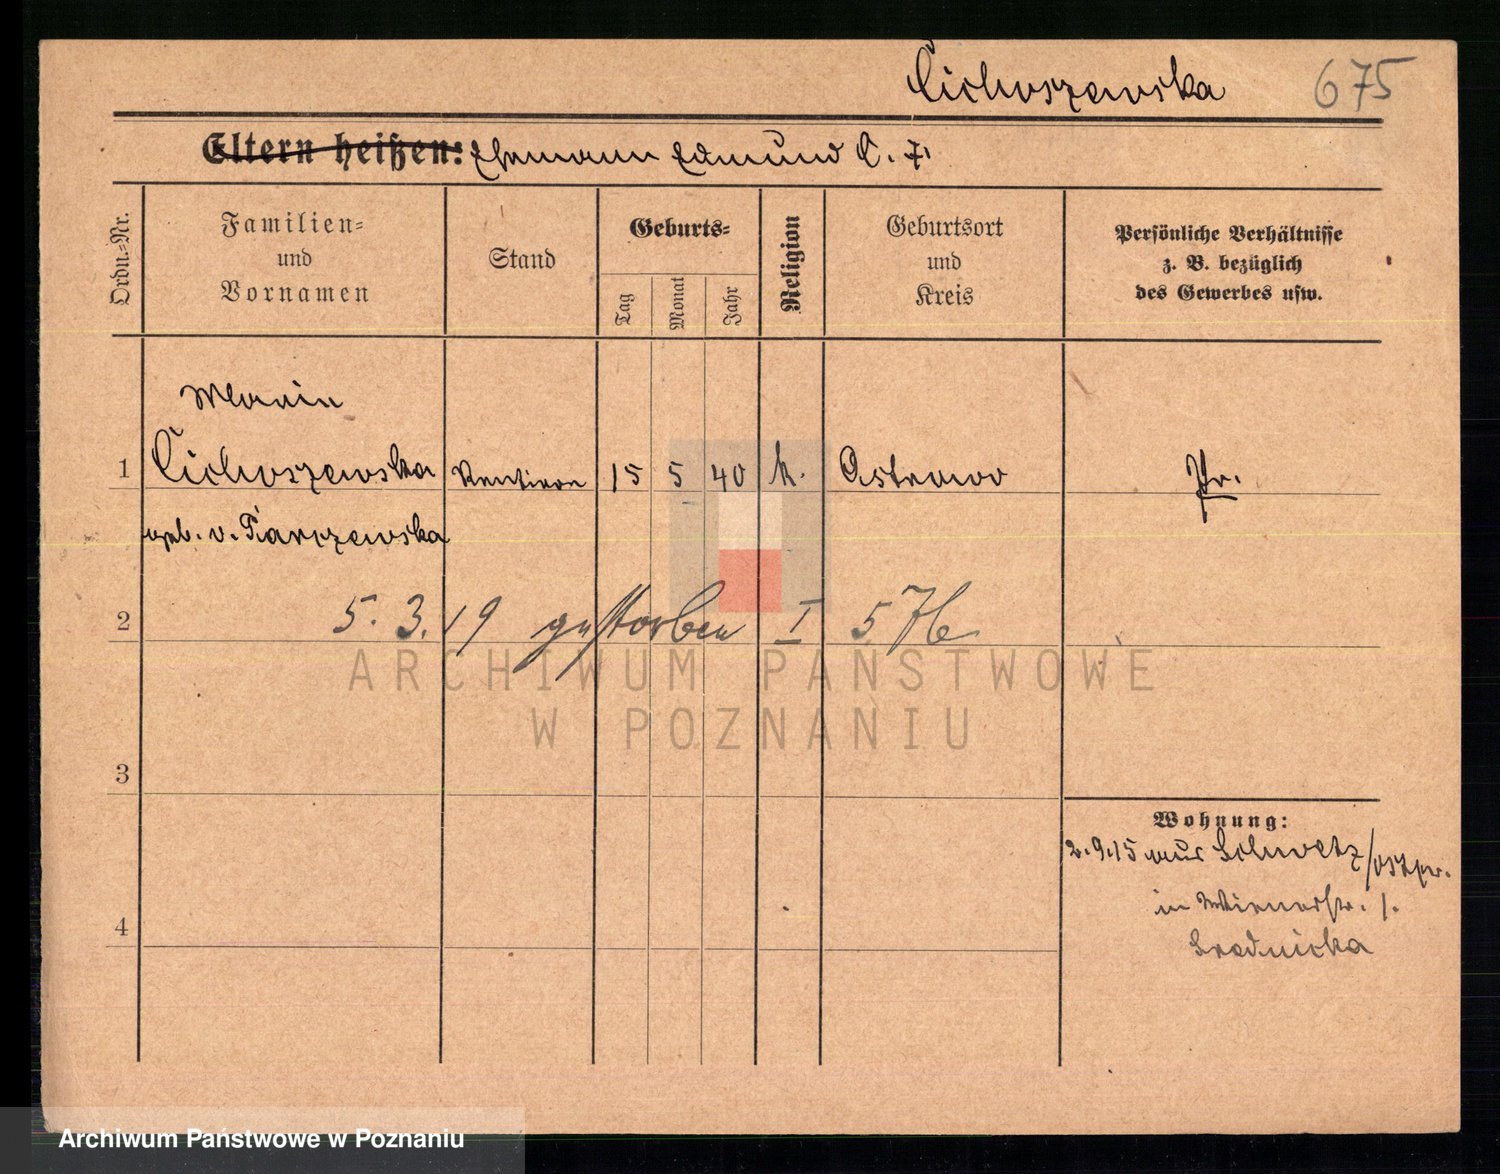 Cichoszewska 675
Eltern heißen: Ehemann Edmund C. †
Ordn.-Nr.
Familien- und Vornamen
Stand
Geburts-
Tag
Monat
Jahr
Religion
Geburtsort und Kreis
Persönliche Verhältnisse
z. B. bezüglich
des Gewerbes usw.
Maria
1 Cichoszewska Rentiere 15 5 40 k. Ostrowo Pr.
geb. v. Parczewska
2 5. 3. 19 gestorben I 576
3
Wohnung:
2.9.15 aus Schwetz/Ostpr.
in Wienerstr. 1.
Srednicka
4
ARCHIWUM PAŃSTWOWE
W POZNANIU
Archiwum Państwowe w Poznaniu